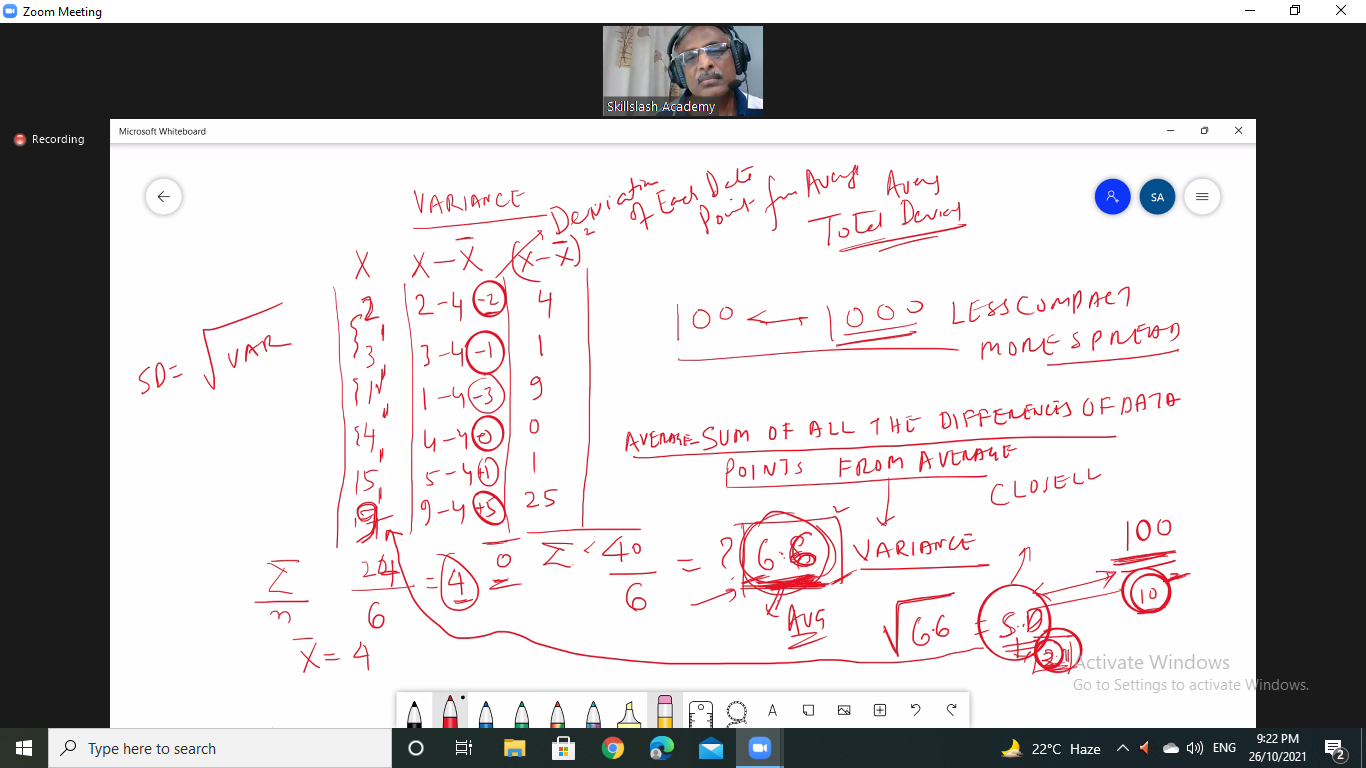 Zoom Meeting
Skillslash Academy
Recording
Microsoft Whiteboard
SA
VARIANCE
Deviation of Each Data Point from Average
Total
X
X - X̄
(X - X̄)²
2
2 - 4 -2
4
3
3 - 4 -1
1
1
1 - 4 -3
9
4
4 - 4 0
0
5
5 - 4 +1
1
9
9 - 4 +5
25
SD = √VAR
100 ← 1000 LESS COMPACT
MORE SPREAD
AVERAGE SUM OF ALL THE DIFFERENCES OF DATA
POINTS FROM AVERAGE
Σ
n
24
6
= 4
0
Σ
40
6
= ?
6.6
2
VARIANCE
AVG
√6.6 = S.D
100
10
X̄ = 4
Activate Windows
Go to Settings to activate Windows.
A
Type here to search
22°C Haze
ENG
9:22 PM
26/10/2021
2